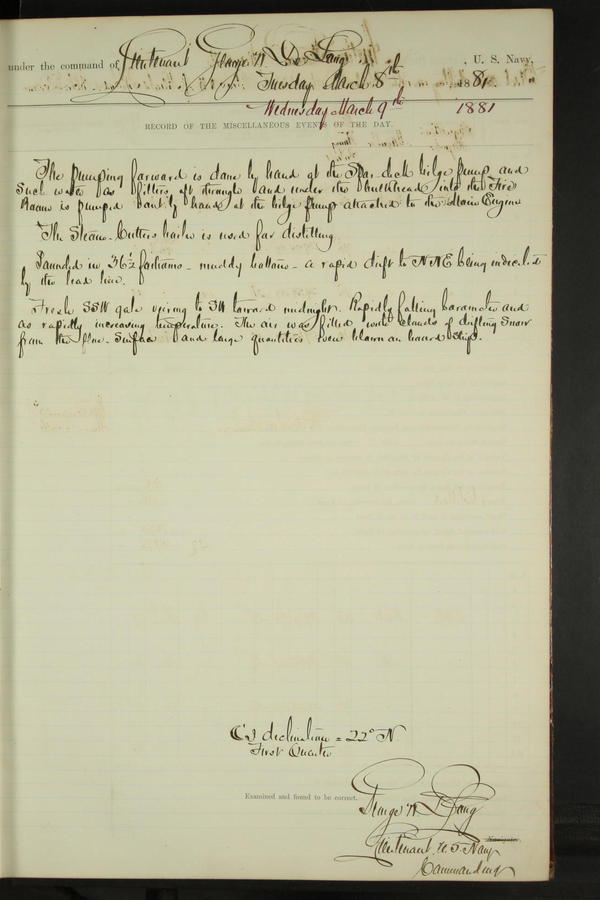 under the command of Lieutenant George W De Long, U. S. Navy,
Tuesday March 8th 1881.
Wednesday March 9th 1881
RECORD OF THE MISCELLANEOUS EVENTS OF THE DAY.
The pumping forward is done by hand at the Spar deck bilge pump and
such water as filters aft through and under the bulkhead into the Fire
Room is pumped out by hand at the bilge pump attached to the Main Engine
The Steam-Cutters boiler is used for distilling
Sounded in 36½ fathoms - muddy bottom - a rapid drift to NNE being indicated
by the lead line.
Fresh SSW gale veering to SW toward midnight. Rapidly falling barometer and
as rapidly increasing temperature. The air was filled with clouds of drifting snow
from the floe-surface and large quantities were blown on board ship.
declination = 22° N
First Quarter
Examined and found to be correct.
George W De Long
Navigator.
Lieutenant U.S. Navy
Commanding